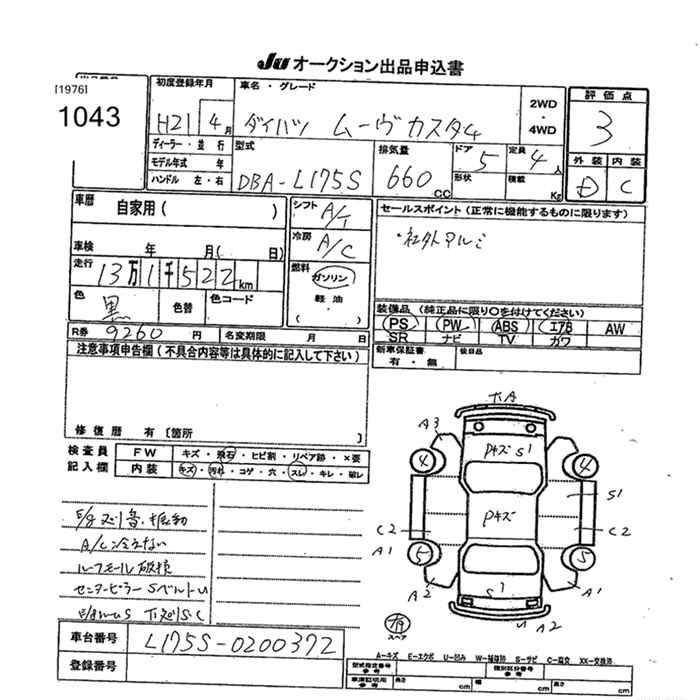 Ju オークション出品申込書
[1976]
1043
初度登録年月
H21 4月
車名・グレード
ダイハツ ムーヴカスタム
2WD
・
4WD
評価点
3
外装 内装
D C
ディーラー・並行
モデル年式 年
ハンドル 左・右
型式
DBA-L175S
排気量
660 CC
ドア 5
形状
定員 4人
積載 Kg
車歴
自家用( )
車検 年 月( 日)
走行 13万1千522km
色 黒
色替
色コード
シフト A/T
冷房 A/C
燃料
ガソリン
軽油
( )
セールスポイント(正常に機能するものに限ります)
・社外アルミ
装備品(純正品に限り○を付けてください)
PS PW ABS エアB AW
SR ナビ TV カワ
新車保証書
有・無
後日品
R券 9260円
名変期限 月 日
注意事項申告欄(不具合内容等は具体的に記入して下さい)
修復歴 有[箇所 ]
検査員
記入欄
FW キズ・飛石・ヒビ割・リペア跡・×要
内装 キズ・汚れ・コゲ・穴・スレ・キレ・破レ
A/C冷えない
ルーフモール破損
センターピラー Sベルト
下廻りS・C
車台番号 L175S-0200372
登録番号
A3
PキズS1
4 4
S1
Pキズ
C2 C2
A1
5 5
A2 A1
S1
A2
スペア
A-キズ E-エクボ U-凹み W-補修跡 S-サビ C-腐食 XX-交換済
型式指定番号
参考
類別区分番号
参考
車庫証明用
参考
長さ cm
幅 cm
高さ cm